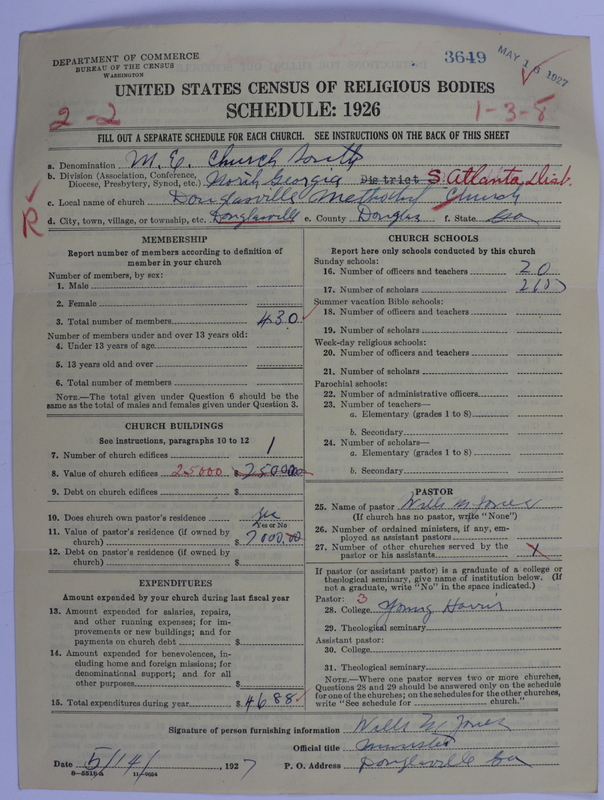 DEPARTMENT OF COMMERCE
BUREAU OF THE CENSUS
WASHINGTON
3649
MAY 16 1927
UNITED STATES CENSUS OF RELIGIOUS BODIES
SCHEDULE: 1926
2-2
1-3-8
FILL OUT A SEPARATE SCHEDULE FOR EACH CHURCH. SEE INSTRUCTIONS ON THE BACK OF THIS SHEET
a. Denomination M. E. Church South
b. Division (Association, Conference, Diocese, Presbytery, Synod, etc.) North Georgia District S. Atlanta Dist.
c. Local name of church Douglasville Methodist Church
d. City, town, village, or township, etc. Douglasville e. County Douglas f. State Ga
R
MEMBERSHIP
Report number of members according to definition of
member in your church
Number of members, by sex:
1. Male
2. Female
3. Total number of members 430
Number of members under and over 13 years old:
4. Under 13 years of age
5. 13 years old and over
6. Total number of members
NOTE.—The total given under Question 6 should be
same as the total of males and females given under Question 3.
CHURCH BUILDINGS
See instructions, paragraphs 10 to 12
7. Number of church edifices 1
8. Value of church edifices 25000 $
9. Debt on church edifices $
10. Does church own pastor's residence Yes
Yes or No
11. Value of pastor's residence (if owned by
church) $ 7000.00
12. Debt on pastor's residence (if owned by
church) $
EXPENDITURES
Amount expended by your church during last fiscal year
13. Amount expended for salaries, repairs,
and other running expenses; for im-
provements or new buildings; and for
payments on church debt $
14. Amount expended for benevolences, in-
cluding home and foreign missions; for
denominational support; and for all
other purposes $
15. Total expenditures during year $ 4688
CHURCH SCHOOLS
Report here only schools conducted by this church
Sunday schools:
16. Number of officers and teachers 20
17. Number of scholars
Summer vacation Bible schools:
18. Number of officers and teachers
19. Number of scholars
Week-day religious schools:
20. Number of officers and teachers
21. Number of scholars
Parochial schools:
22. Number of administrative officers
23. Number of teachers—
a. Elementary (grades 1 to 8)
b. Secondary
24. Number of scholars—
a. Elementary (grades 1 to 8)
b. Secondary
PASTOR
25. Name of pastor Wills M Jones
(If church has no pastor, write "None")
26. Number of ordained ministers, if any, em-
ployed as assistant pastors
27. Number of other churches served by the
pastor or his assistants
If pastor (or assistant pastor) is a graduate of a college or
theological seminary, give name of institution below. (If
not a graduate, write "No" in the space indicated.)
Pastor: 3
28. College Young Harris
29. Theological seminary
Assistant pastor:
30. College
31. Theological seminary
NOTE.—Where one pastor serves two or more churches,
Questions 28 and 29 should be answered only on the schedule
for one of the churches; on the schedules for the other churches,
write "See schedule for church."
Signature of person furnishing information Wills M Jones
Official title Minister
Date 5/14/, 1927 P. O. Address Douglasville Ga
8-5518a 11-9024